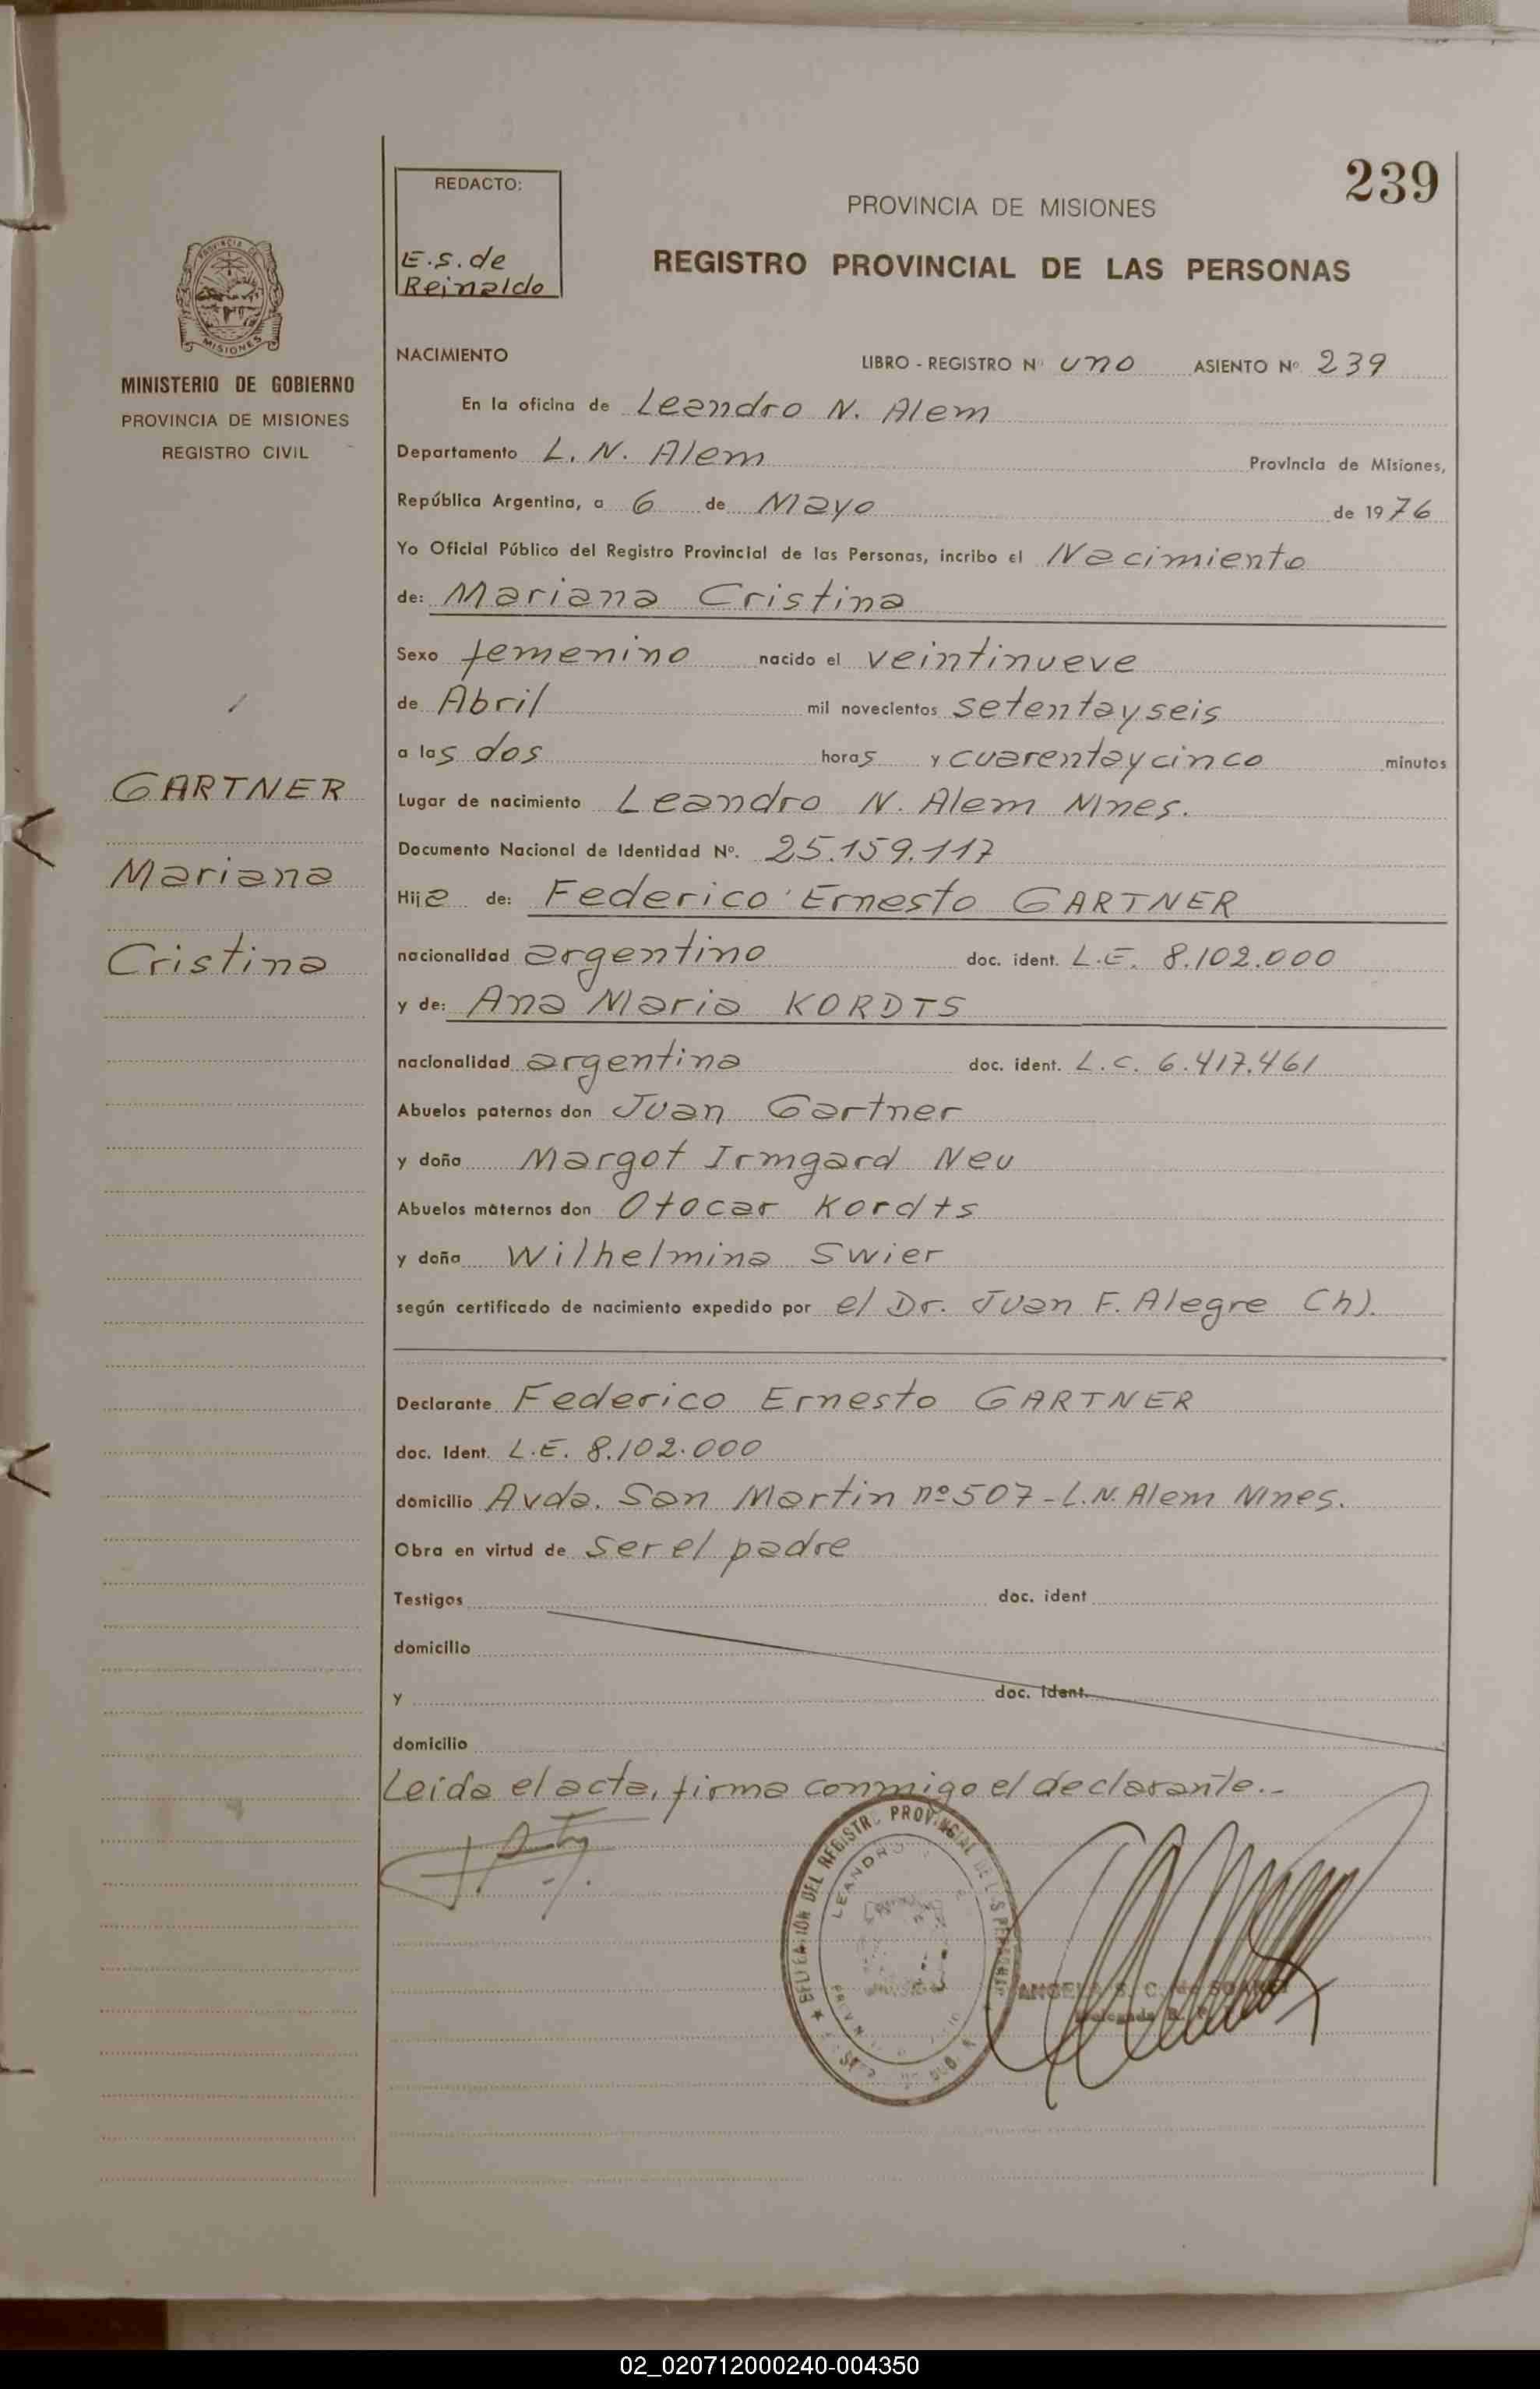 239
REDACTO:
E.S. de
Reinaldo
PROVINCIA DE MISIONES
REGISTRO PROVINCIAL DE LAS PERSONAS
PROVINCIA DE
MISIONES
MINISTERIO DE GOBIERNO
PROVINCIA DE MISIONES
REGISTRO CIVIL
GARTNER
Mariana
Cristina
NACIMIENTO LIBRO - REGISTRO Nº uno ASIENTO Nº 239
En la oficina de Leandro N. Alem
Departamento L. N. Alem Provincia de Misiones,
República Argentina, a 6 de Mayo de 1976
Yo Oficial Público del Registro Provincial de las Personas, incribo el Nacimiento
de: Mariana Cristina
Sexo femenino nacido el veintinueve
de Abril mil novecientos setentayseis
a las dos horas y cuarentaycinco minutos
Lugar de nacimiento Leandro N. Alem Mnes.
Documento Nacional de Identidad Nº. 25.159.117
Hija de: Federico Ernesto GARTNER
nacionalidad argentino doc. ident. L.E. 8.102.000
y de: Ana Maria KORDTS
nacionalidad argentina doc. ident. L.C. 6.417.461
Abuelos paternos don Juan Gartner
y doña Margot Irmgard Neu
Abuelos maternos don Otocar Kordts
y doña Wilhelmina Swier
según certificado de nacimiento expedido por el Dr. Juan F. Alegre (h).
Declarante Federico Ernesto GARTNER
doc. Ident. L.E. 8.102.000
domicilio Avda. San Martin nº 507 - L.N. Alem Mnes.
Obra en virtud de ser el padre
Testigos doc. ident
domicilio
y doc. ident.
domicilio
Leida el acta, firma conmigo el declarante.-
DEL REGISTRO PROVINCIAL DE LAS PERSONAS
LEANDRO
ANGELA S. C. de
Delegada
02_020712000240-004350